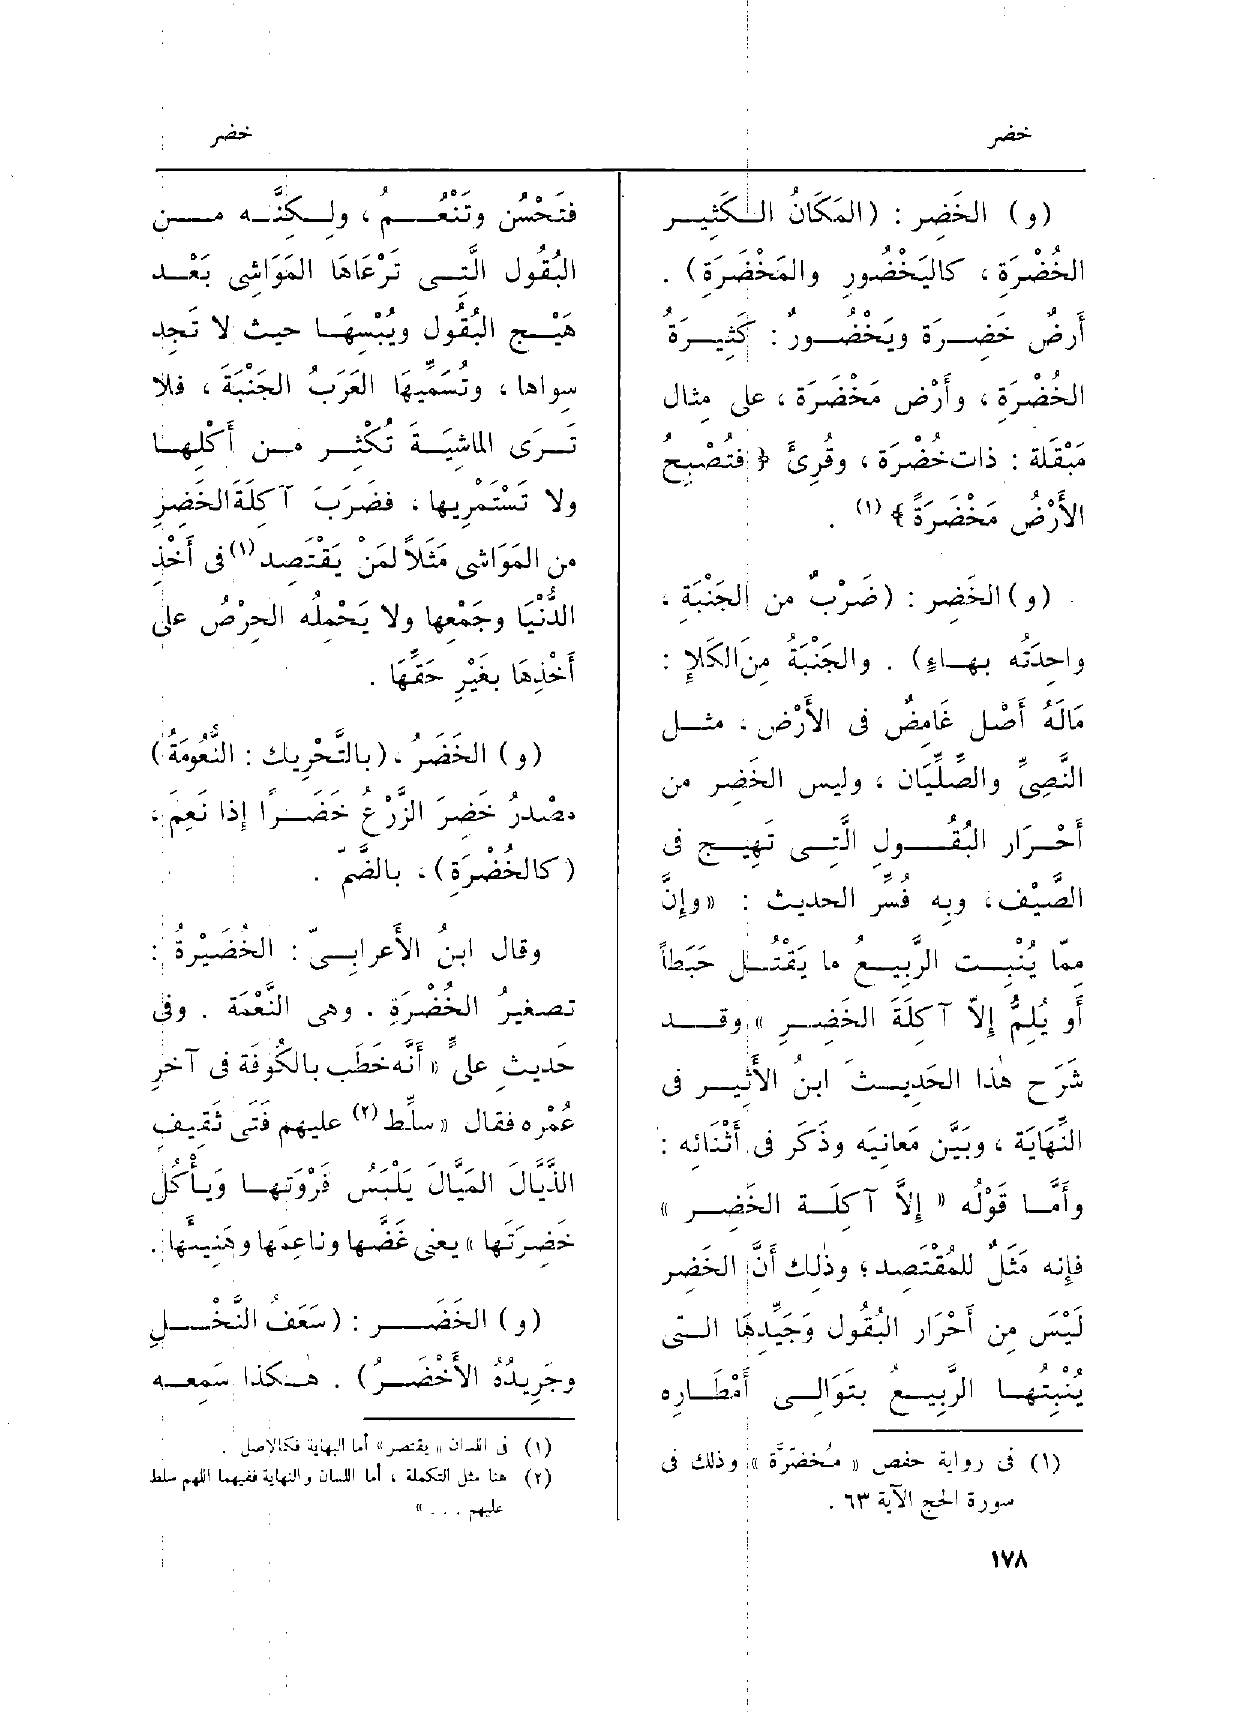 خضر
خضر
(و) الخَضِر : (المَكَانُ الكَثِير
الخُضْرَة ، كاليَخْضُورِ والمَخْضَرَة) .
أَرضٌ خَضِرَة ويَخْضُورٌ : كَثِيرَةُ
الخُضْرَة ، وأَرْض مَخْضَرَة ، على مِثال
مَبْقَلة : ذات خُضْرَة ، وقُرِئَ ﴿ فتُصْبِحُ
الأَرْضُ مَخْضَرَةً ﴾ (١) .
(و) الخَضِر : (ضَرْبٌ من الجَنْبَة ،
واحِدَتُه بهاءٍ) . والجَنْبَةُ مِنَ الكَلإِ :
مَالَهُ أَصْل غَامِضٌ فى الأَرْض ، مثل
النَّصِىِّ والصِّلِّيَان ، وليس الخَضِر من
أَحْرَار البُقُولِ الَّتِى تَهِيج فى
الصَّيْف ، وبه فُسِّر الحديث : « وإِنَّ
مِمّا يُنْبِت الرَّبِيعُ ما يَقْتُل حَبَطاً
أَو يُلِمُّ إِلاّ آكلَةَ الخَضِرِ » وقد
شَرَح هذا الحَدِيثَ ابنُ الأَثِير فى
النِّهَايَة ، وبَيَّن مَعانِيَه وذَكَر فى أَثْنَائه :
وأَمَّا قَوْلُه « إِلاَّ آكلَة الخَضِر »
فإِنه مَثَلٌ للمُقْتَصِد ؛ وذٰلِك أَنَّ الخَضِر
لَيْسَ مِن أَحْرَار البُقُول وَجَيِّدِهَا التى
يُنْبِتُها الرَّبِيعُ بتَوَالِى أَمْطَاره
(١) فى رواية حفص « مُخضَرَّة » وذلك فى
سورة الحج الآية ٦٣ .
١٧٨
فتَحْسُن وتَنْعُمُ ، ولكنَّه مِن
البُقُول الَّتِى تَرْعَاهَا المَوَاشِى بَعْد
هَيْجِ البُقُولِ ويُبْسِهَا حيث لا تَجِد
سِواها ، وتُسَمِّيهَا العَرَبُ الجَنْبَةَ ، فلا
تَرَى الماشِيَةَ تُكْثِرُ مِن أَكْلِها
ولا تَسْتَمْرِيها ، فضَرَبَ آكلَةَ الخَضِرِ
من المَوَاشِى مَثَلاً لمَنْ يَقْتَصِد (١) فى أَخْذِ
الدُّنْيَا وجَمْعِها ولا يَحْمِلُه الحِرْصُ على
أَخْذِهَا بغَيْرِ حَقِّهَا .
(و) الخَضَرُ ، (بالتَّحْرِيك : النُّعُومَةُ)
مصْدرُ خَضِرَ الزَّرْعُ خَضَراً إِذا نَعِمَ ،
(كالخُضْرَة) ، بالضَّمّ .
وقال ابنُ الأَعرابِىّ : الخُضَيْرةُ :
تصغيرُ الخُضْرَةِ . وهى النَّعْمَة . وفى
حَديثِ علىٍّ « أَنَّه خَطَب بالكُوفَة فى آخرِ
عُمْرِه فقال « سلِّط (٢) عليهم فَتَى ثَقِيفٍ
الذَّيَّالَ المَيَّالَ يَلْبَسُ فَرْوَتها ويَأْكُل
خَضِرَتَها » يعنى غَضَّها وناعِمَها وهَنِيئَها .
(و) الخَضَر : (سَعَفُ النَّخْلِ
وجَرِيدُهُ الأَخْضَرُ) . هٰكذا سَمِعه
(١) فى اللسان « يقتصر » أما النهاية فكالاصل .
(٢) هنا مثل التكملة ، أما اللسان والنهاية ففيهما اللهم سلط
عليهم . . . »